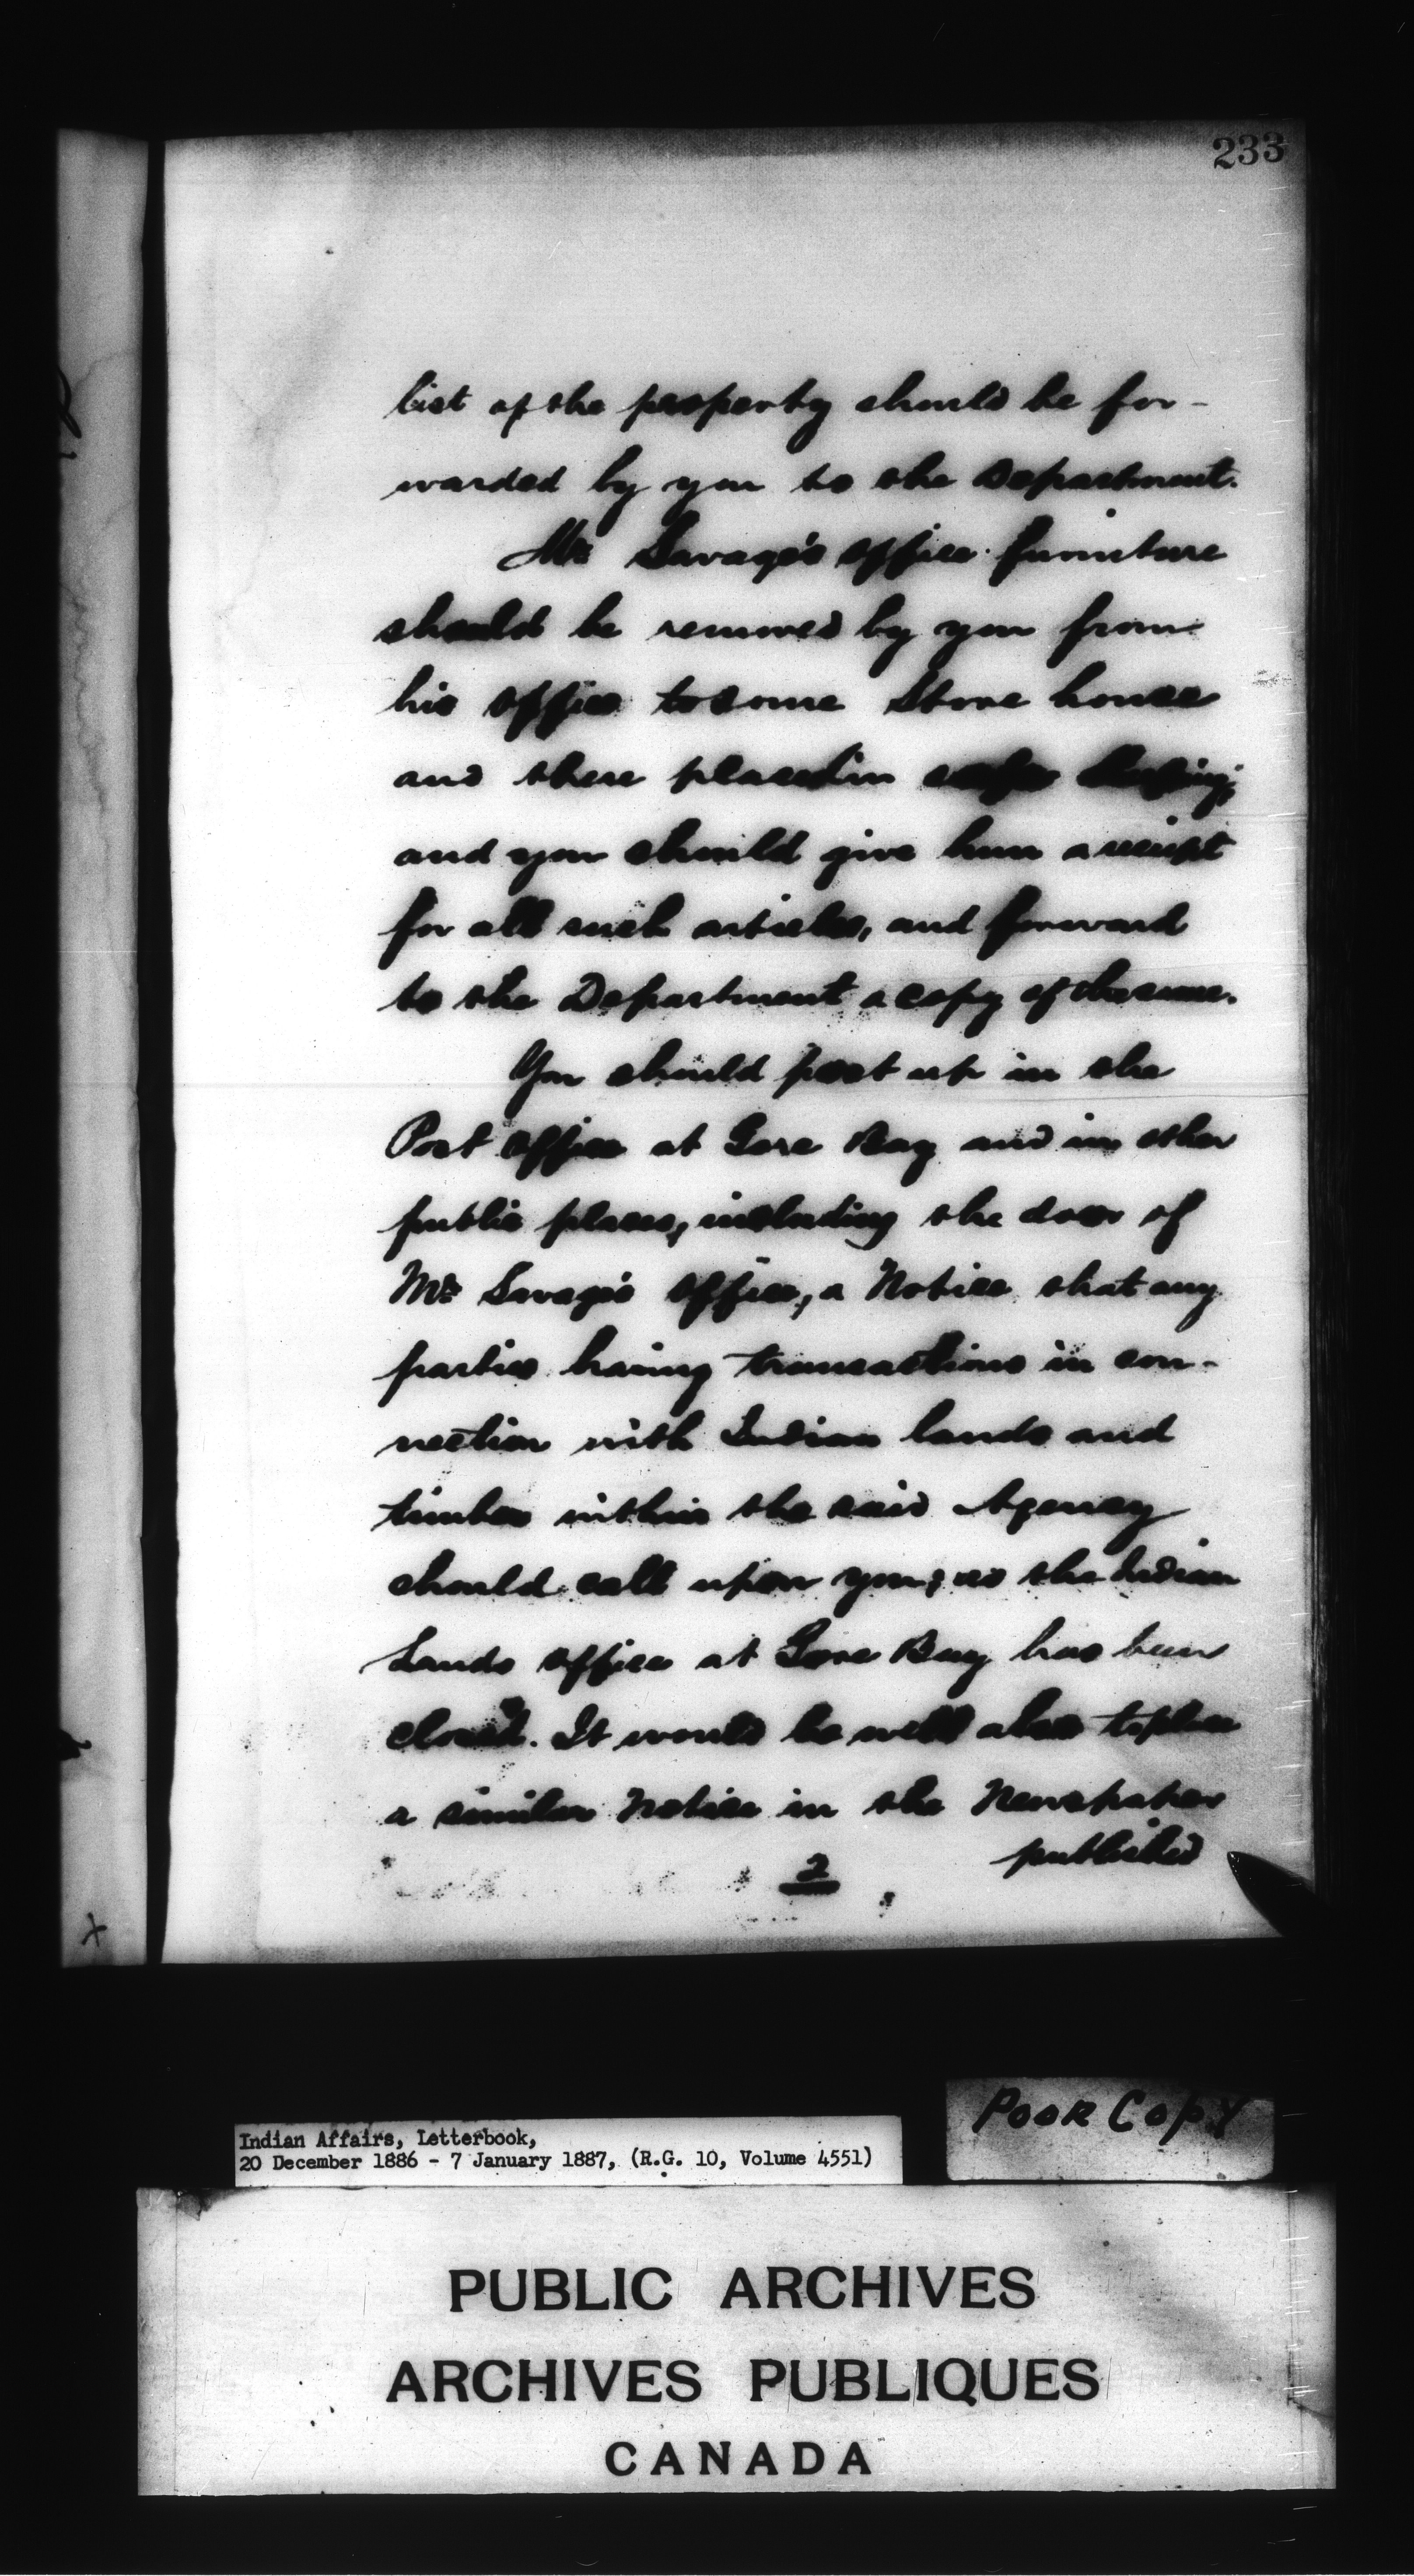 233
list of the property should be for-
warded by you to the Department.
Mr Savage's office furniture
should be removed by you from
his office to some Store house
and there placed in safe keeping;
and you should give him a receipt
for all such articles, and forward
to the Department a copy of the same.
You should post up in the
Post office at Gore Bay and in other
public places, including the door of
Mr Savage's office, a Notice that any
parties having transactions in con-
nection with Indian lands and
timber within the said Agency
should call upon you, as the Indian
Lands office at Gore Bay has been
closed. It would be well also to place
a similar notice in the Newspaper
published
2
Poor Copy
Indian Affairs, Letterbook,
20 December 1886 - 7 January 1887, (R.G. 10, Volume 4551)
PUBLIC ARCHIVES
ARCHIVES PUBLIQUES
CANADA